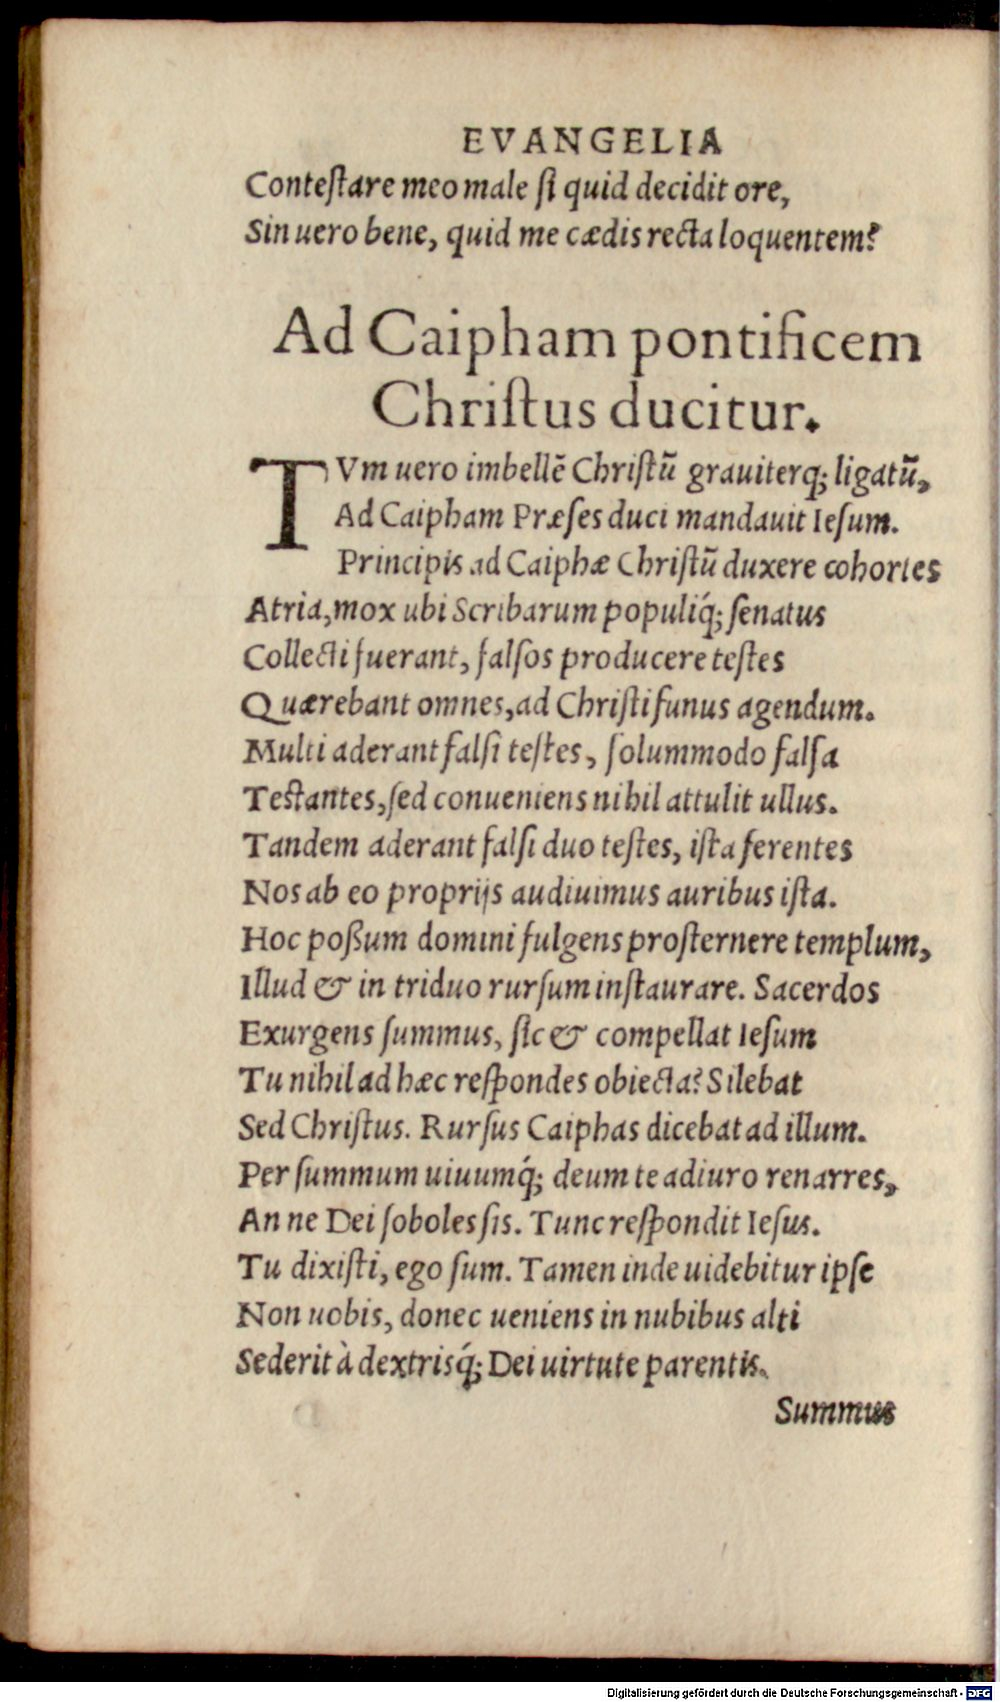 EVANGELIA
Conteſtare meo male ſi quid decidit ore,
Sin uero bene, quid me cædis recta loquentem?
Ad Caipham pontificem
Chriſtus ducitur.
TVm uero imbellē Chriſtū grauiterq; ligatū,
Ad Caipham Præſes duci mandauit Ieſum.
Principis ad Caiphæ Chriſtū duxere cohortes
Atria, mox ubi Scribarum populiq́; ſenatus
Collecti fuerant, falſos producere teſtes
Quærebant omnes, ad Chriſti funus agendum.
Multi aderant falſi teſtes, ſolummodo falſa
Teſtantes, ſed conueniens nihil attulit ullus.
Tandem aderant falſi duo teſtes, iſta ferentes
Nos ab eo proprijs audiuimus auribus iſta.
Hoc poßum domini fulgens proſternere templum,
Illud & in triduo rurſum inſtaurare. Sacerdos
Exurgens ſummus, ſic & compellat Ieſum
Tu nihil ad hæc reſpondes obiecta? Silebat
Sed Chriſtus. Rurſus Caiphas dicebat ad illum.
Per ſummum uiuumq́; deum te adiuro renarres,
An ne Dei ſoboles ſis. Tunc reſpondit Ieſus.
Tu dixiſti, ego ſum. Tamen inde uidebitur ipſe
Non uobis, donec ueniens in nubibus alti
Sederit à dextrisq́; Dei uirtute parentis.
Summus
Digitalisierung gefördert durch die Deutsche Forschungsgemeinschaft - DFG